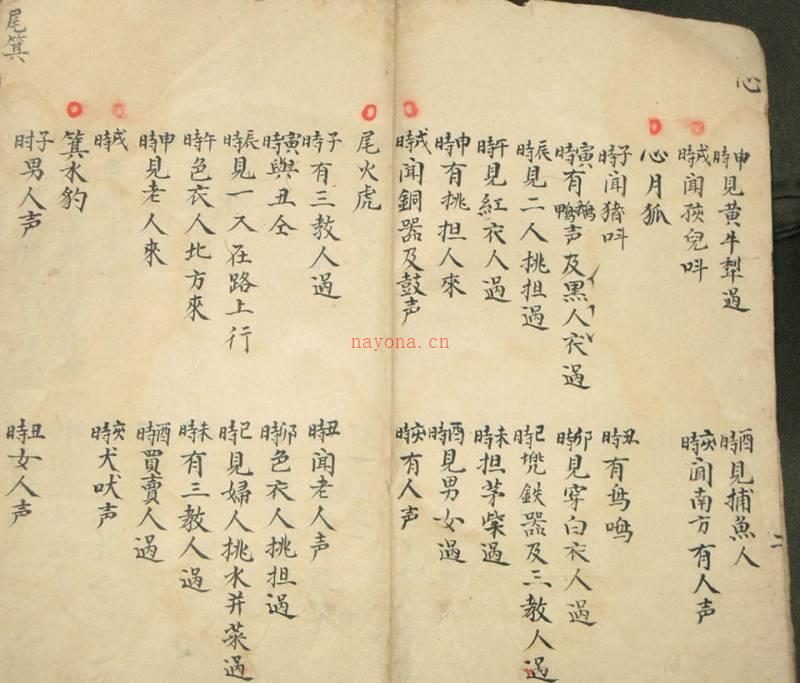 心
申時見黃牛犁過
酉時見捕魚人
戌時聞孩兒呌
亥時聞南方有人声
心月狐
子時聞猪呌
丑時有鸟鳴
寅時有鵝鴨声及黑人衣過
卯時見穿白衣人過
辰時見二人挑担過
巳時鉄器及三教人過
午時見紅衣人過
未時担茅柴過
申時有挑担人來
酉時見男女過
戌時聞銅器及鼓声
亥時有人声
尾火虎
子時有三教人過
丑時聞老人声
寅時與丑仝
卯時色衣人挑担過
辰時見一人在路上行
巳時見婦人挑水并菜過
午時色衣人北方來
未時有三教人過
申時見老人來
酉時買賣人過
戌時
亥時犬吠声
箕水豹
子时男人声
丑時女人声
尾箕
二
nayona.cn